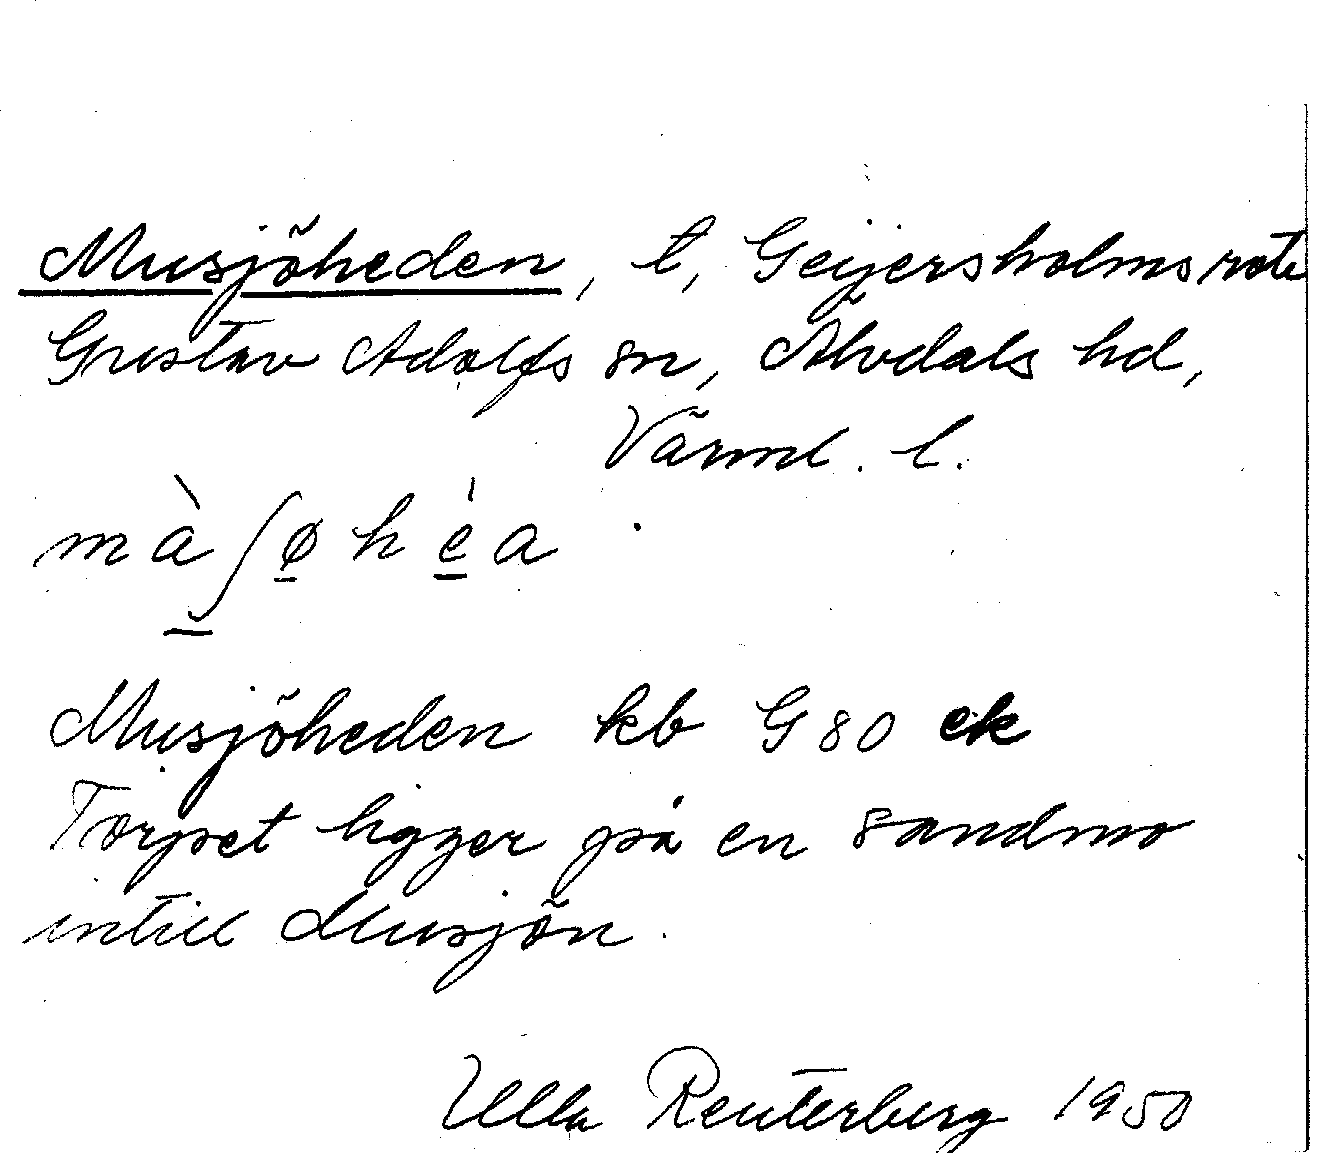 Musjöheden, t, Geijersholms rote
Gustav Adolfs sn, Älvdals hd,
Värml. l.
màʃøhèa
Musjöheden kb G 80 ek
Torpet ligger på en sandmo
intill Musjön.
Ulla Reuterberg 1950